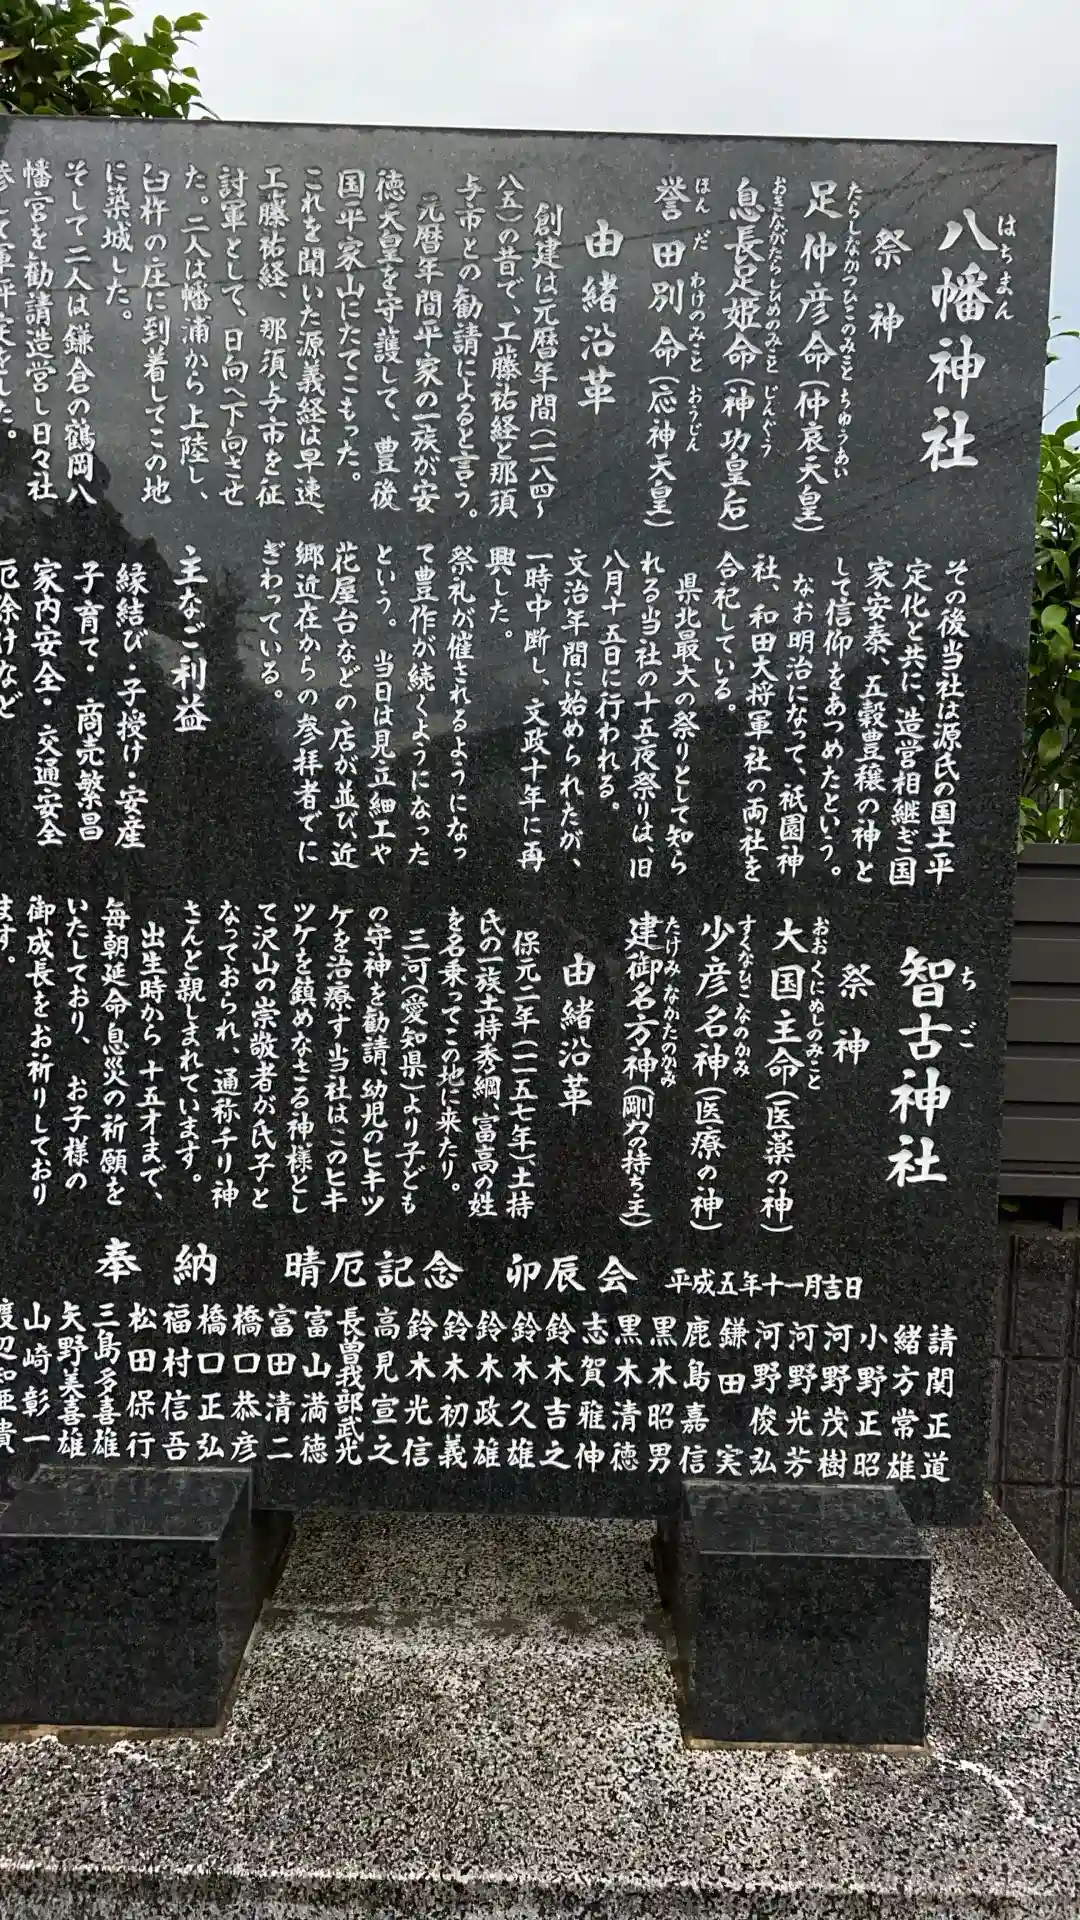 八幡神社
はちまん
祭神
足仲彦命(仲哀天皇)
たらしなかつひこのみこと ちゅうあい
息長足姫命(神功皇后)
おきながたらしひめのみこと じんぐう
誉田別命(応神天皇)
ほんだわけのみこと おうじん
由緒沿革
創建は元暦年間(一一八四〜
八五)の昔で、工藤祐経と那須
与市との勧請によると言う。
元暦年間平家の一族が安
徳天皇を守護して、豊後
国平家山にたてこもった。
これを聞いた源義経は早速、
工藤祐経、那須与市を征
討軍として、日向へ下向させ
た。二人は幡浦から上陸し、
臼杵の庄に到着してこの地
に築城した。
そして二人は鎌倉の鶴岡八
幡宮を勧請造営し日々社
その後当社は源氏の国土平
定化と共に、造営相継ぎ国
家安泰、五穀豊穣の神と
して信仰をあつめたという。
なお明治になって、祇園神
社、和田大将軍社の両社を
合祀している。
県北最大の祭りとして知ら
れる当社の十五夜祭りは、旧
八月十五日に行われる。
文治年間に始められたが、
一時中断し、文政十年に再
興した。
祭礼が催されるようになっ
て豊作が続くようになった
という。 当日は見立細工や
花屋台などの店が並び、近
郷近在からの参拝者でに
ぎわっている。
主なご利益
縁結び・子授け・安産
子育て・商売繁昌
家内安全・交通安全
厄除けなど
智古神社
ちご
祭神
大国主命(医薬の神)
おおくにぬしのみこと
少彦名神(医療の神)
すくなひこなのかみ
建御名方神(剛力の持ち主)
たけみなかたのかみ
由緒沿革
保元二年(一一五七年)、土持
氏の一族土持秀綱、富高の姓
を名乗ってこの地に来たり。
三河(愛知県)より子ども
の守神を勧請、幼児のヒキツ
ケを治療す当社はこのヒキ
ツケを鎮めなさる神様とし
て沢山の崇敬者が氏子と
なっておられ、通称チリ神
さんと親しまれています。
出生時から十五才まで、
毎朝延命息災の祈願を
いたしており、お子様の
御成長をお祈りしており
ます。
奉納 晴厄記念 卯辰会 平成五年十一月吉日
請関正道
緒方常雄
小野正昭
河野茂樹
河野光芳
河野俊弘
鎌田実
鹿島嘉信
黒木昭男
黒木清徳
志賀雅伸
鈴木吉之
鈴木久雄
鈴木政雄
鈴木初義
鈴木光信
高見宣之
長曽我部武光
富山満徳
富田清二
橋口恭彦
橋口正弘
福村信吾
松田保行
三島多喜雄
矢野美喜雄
山崎彰一